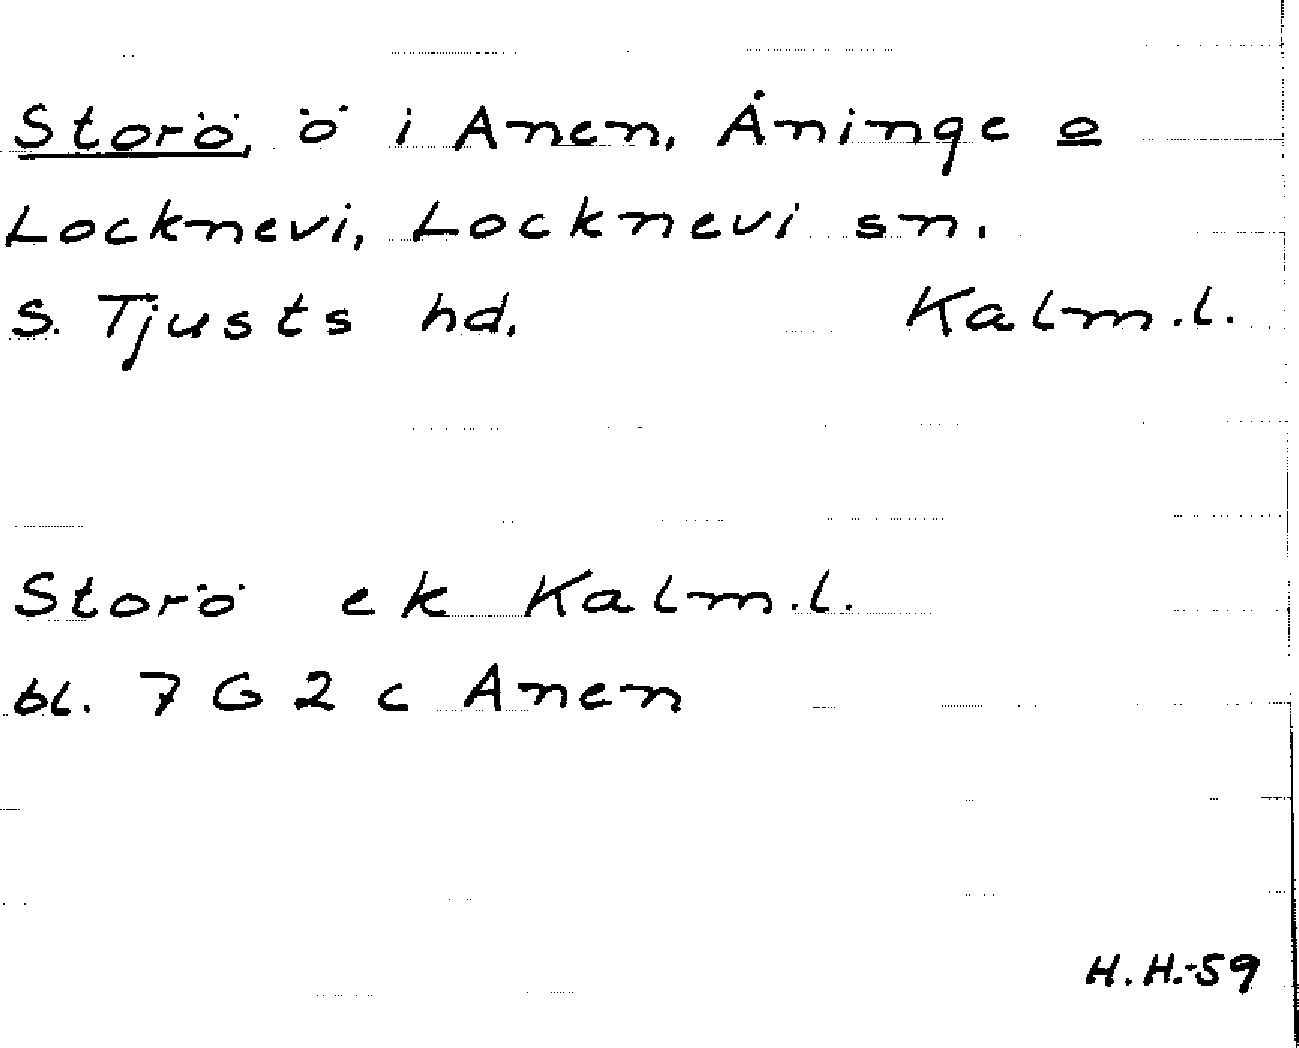 Storö, ö i Anen, Åninge o
Locknevi, Locknevi sn.
S. Tjusts hd. Kalm.l.
Storö ek Kalm.l.
bl. 7 G 2 c Anen
H.H.-59